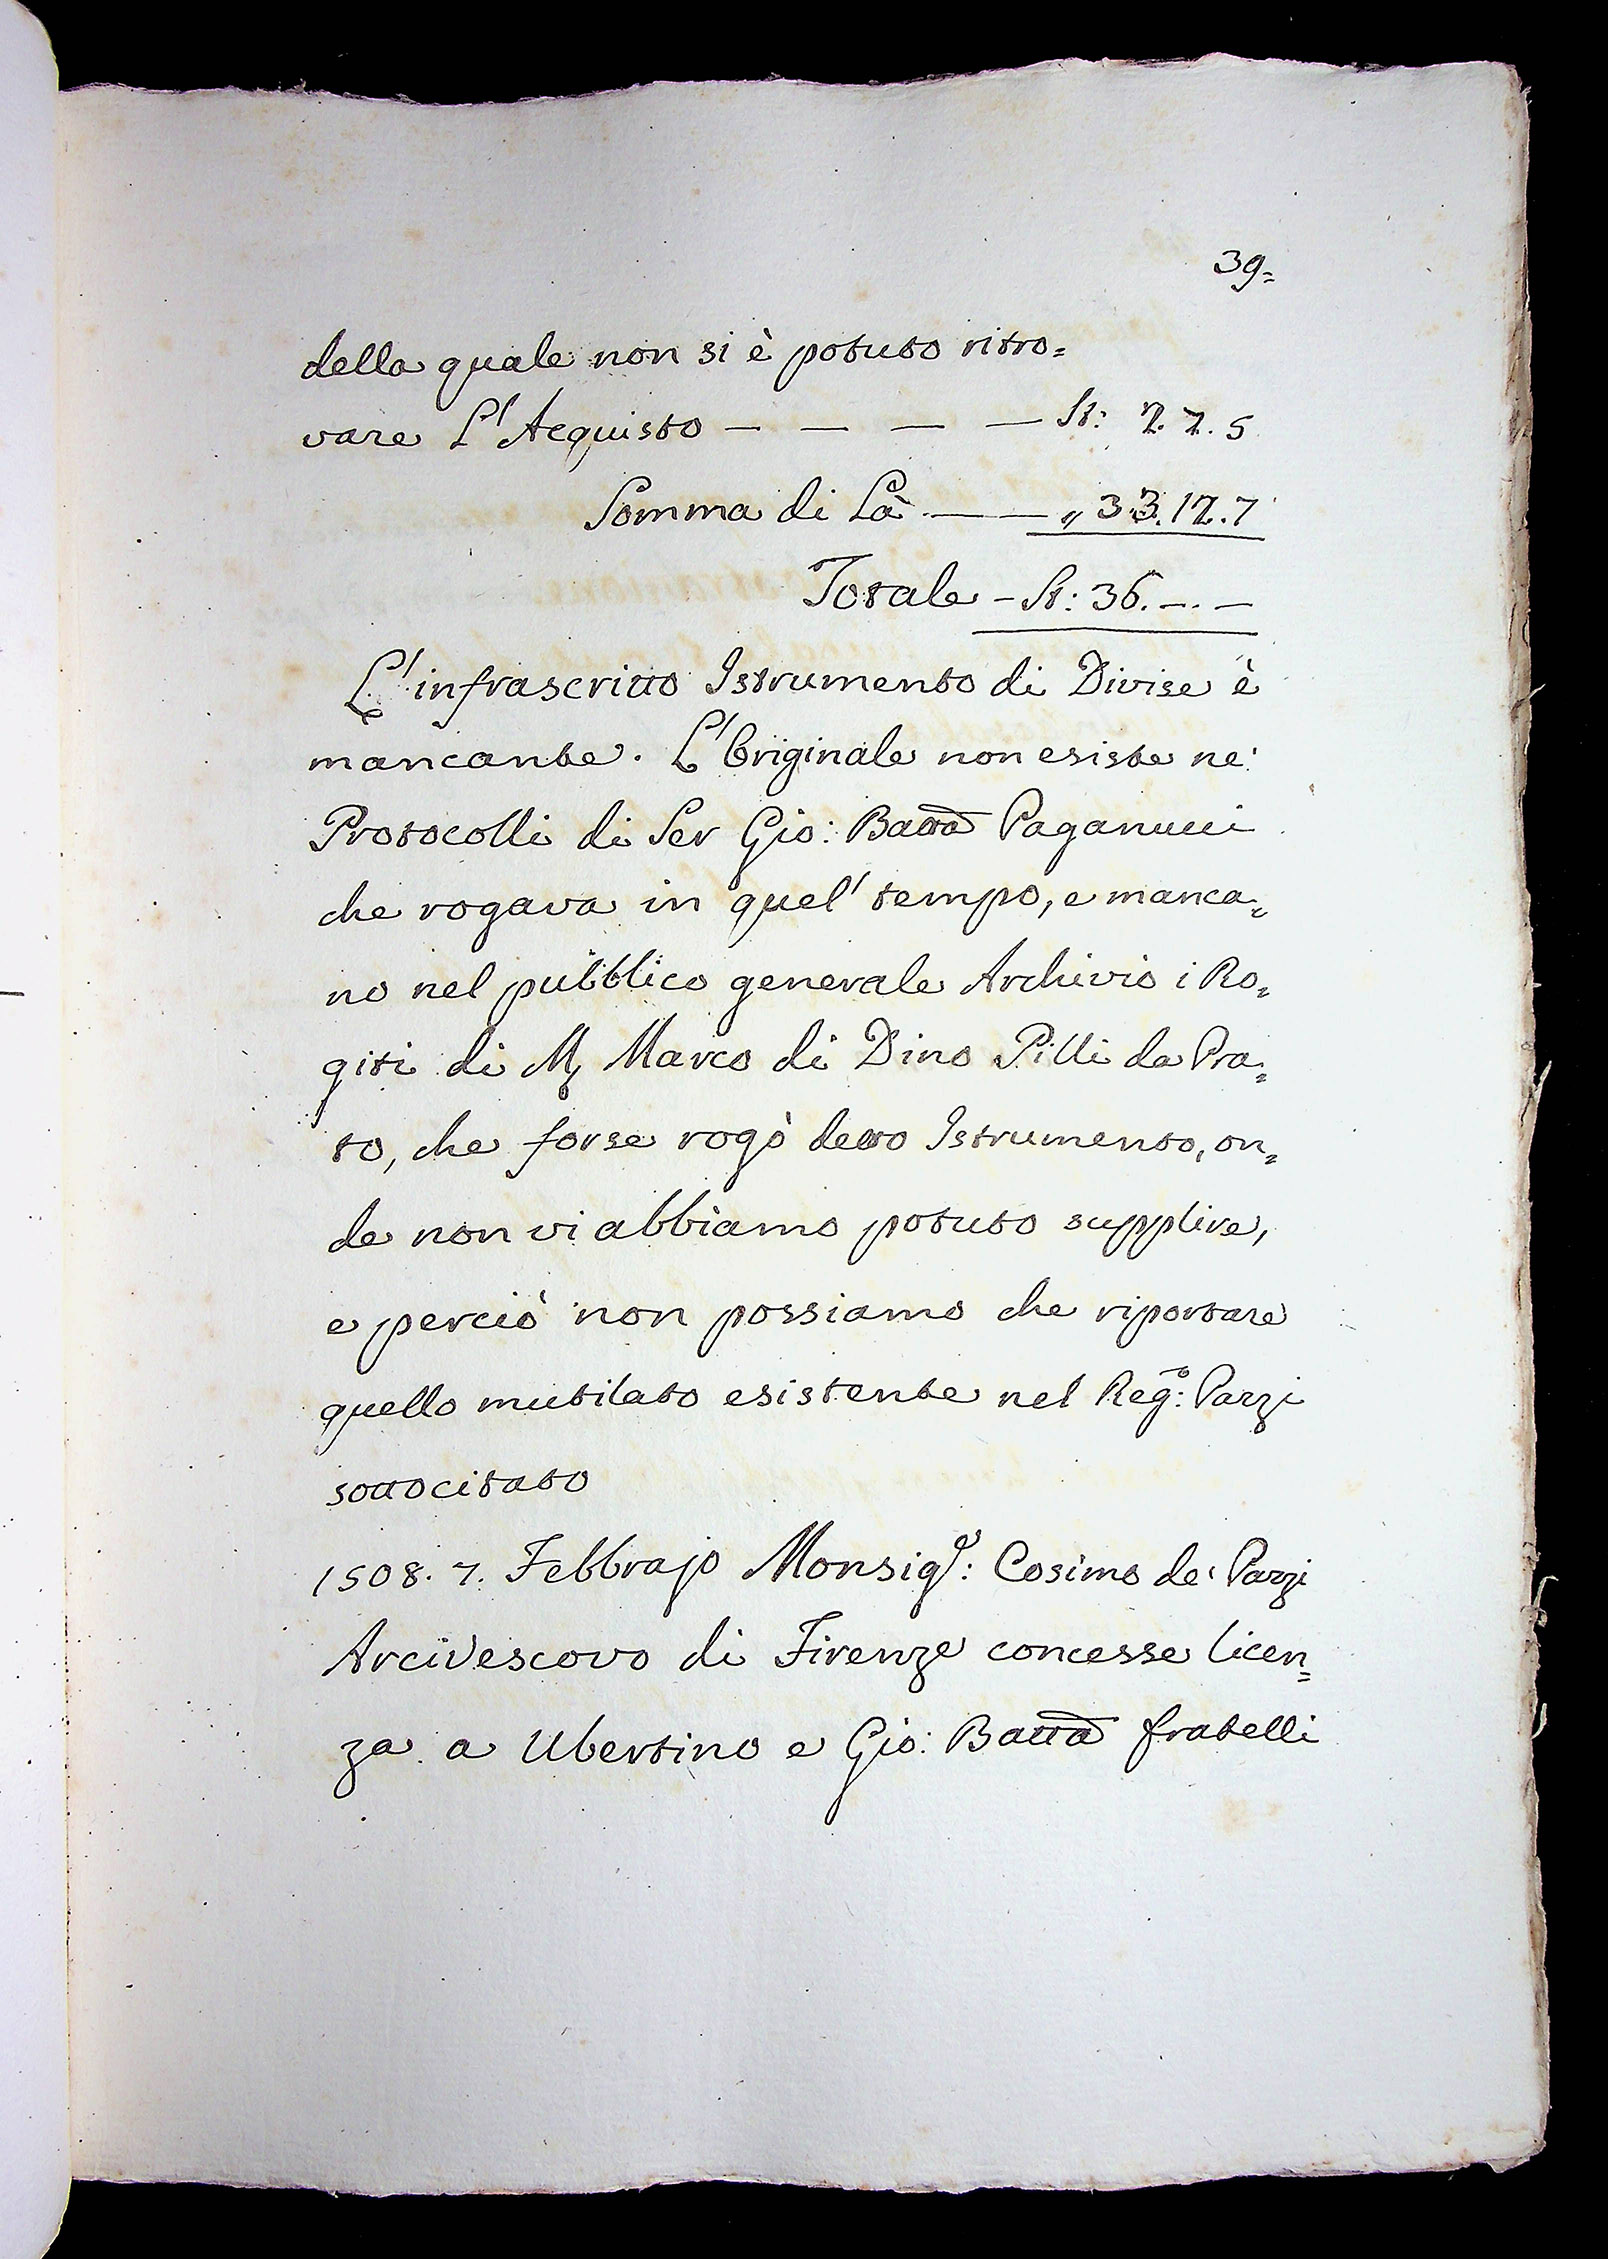 39=
della quale non si è potuto ritro=
vare L'Acquisto — — — — St: 2. 7. 5
Somma di Là — — „ 33. 12. 7
Totale - St: 36. -. -
L'infrascritto Istrumento di Divise è
mancante. L'Originale non esiste ne'
Protocolli di Ser Gio: Batta Paganucci
che rogava in quel' tempo, e manca=
no nel pubblico generale Archivio i Ro=
giti di M, Marco di Dino Pilli da Pra=
to, che forse rogò detto Istrumento, on=
de non vi abbiamo potuto supplire,
e perciò non possiamo che riportare
quello mutilato esistente nel Reg.º: Pazzi
sottocitato
1508. 7. Febbrajo Monsig.e: Cosimo de' Pazzi
Arcivescovo di Firenze concesse licen=
za a Ubertino e Gio: Batta fratelli